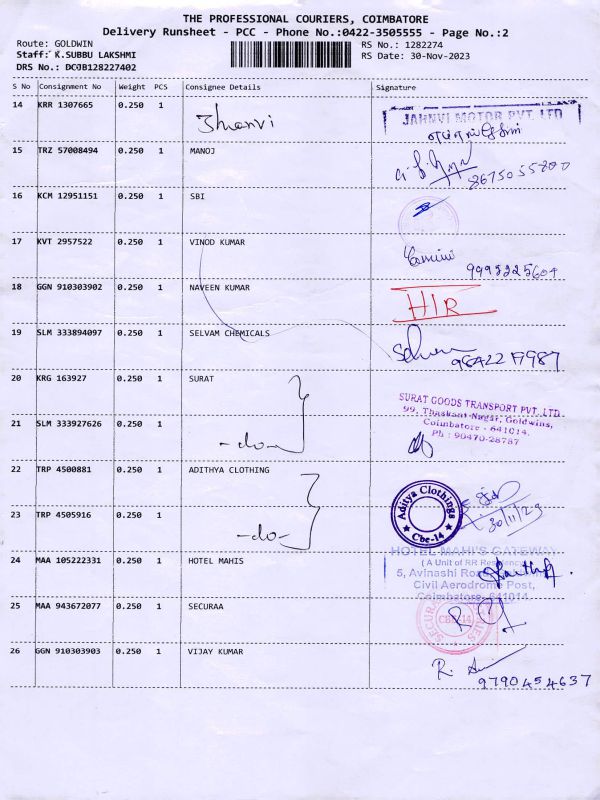 THE PROFESSIONAL COURIERS, COIMBATORE
Delivery Runsheet - PCC - Phone No.:0422-3505555 - Page No.:2
Route: GOLDWIN RS No.: 1282274
Staff: K.SUBBU LAKSHMI RS Date: 30-Nov-2023
DRS No.: DCJB128227402
S No Consignment No Weight PCS Consignee Details Signature
14 KRR 1307665 0.250 1 Jhanvi JAHNVI MOTOR PVT. LTD
15 TRZ 57008494 0.250 1 MANOJ 8675055800
16 KCM 12951151 0.250 1 SBI
17 KVT 2957522 0.250 1 VINOD KUMAR 9998225604
18 GGN 910303902 0.250 1 NAVEEN KUMAR HIR
19 SLM 333894097 0.250 1 SELVAM CHEMICALS
20 KRG 163927 0.250 1 SURAT
SURAT GOODS TRANSPORT PVT. LTD
99, Thaskant Nagar, Goldwins,
Coimbatore - 641014.
Ph : 90470-28787
21 SLM 333927626 0.250 1 -do-
22 TRP 4500881 0.250 1 ADITHYA CLOTHING
Aditya Clothings
Cbe-14
30/11/23
23 TRP 4505916 0.250 1 -do-
24 MAA 105222331 0.250 1 HOTEL MAHIS
HOTEL MAHI'S GATEWAY
( A Unit of RR Residency
5, Avinashi Road
Civil Aerodrome Post,
Coimbatore- 641014
25 MAA 943672077 0.250 1 SECURAA
CBE-14
26 GGN 910303903 0.250 1 VIJAY KUMAR 9790454637